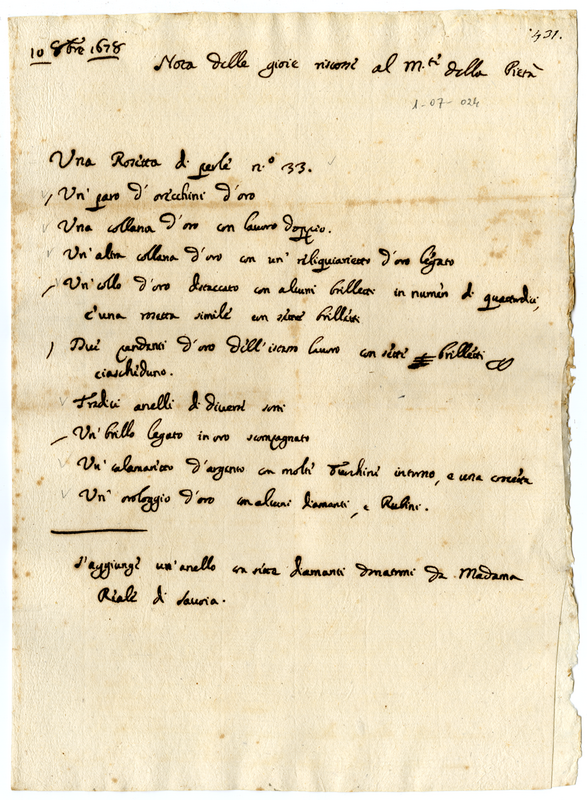 10 8bre 1678
431.
Nota delle gioie riscosse al M.te della Pietà
1-07-024
Una Rosetta di perle n.o 33.
Un' paro d'orecchini d'oro
Una collana d'oro con lauoro doppio.
Un'altra collana d'oro con un' reliquiarietto d'oro legato
Un'collo d'oro distaccato con alcuni brilletti in numero di quattordici,
e'una rosetta simile con sette brilletti
Due pendenti d'oro dell'istesso lauoro con sette brilletti
ciascheduno.
Tredici anelli di diuerse sorti
Un'brillo legato in oro scompagnato
Un'calamarietto d'argento con molte Turchine intorno, e una
Un' orologgio d'oro con alcuni diamanti, e Rubini.
S'aggiunge un'anello con sette diamanti donatomi da Madama
Reale di Sauoia.